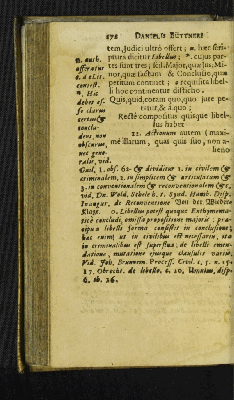 578 DANIELIS BÜTTNERI
tem, Judici ultrò offert; n. hæc scri-
ptura dicitur Libellus; *. cujus par-
tes sunt tres; scil. Major, quæ jus, Mi-
nor, quæ factum & Conclusio, quæ
petitum continet; o requisita libel-
li hoc continentur disticho.
Quis, quid, coram quo, quo jure pe-
tatur, & à quo;
Rectè compositus quisque libel-
lus habet
12. Actionum autem (maxi-
mè illarum, quas quis suo, non a-
lieno
n. auth.
offeratur
C. de lit.
contest.
*. Hic
debet es-
se clarus
certus &
conclu-
dens, non
obscurus,
nec gene-
ralis, vid.
Gail, 1. obs. 61. & dividitur 1. in civilem &
criminalem, 2. in simplicem & articulatum &
3. in conventionalem & reconventionalem &c,
vid. Dn. Wold. Schele b. t. Synd. Hamb. Disp.
Inaugur. de Reconventione Von der Wieder-
Klage. o. Libellus potest quoque Enthymema-
ticè concludi, omissâ propositione majore; præ-
cipua libelli forma consistit in conclusione;
hæc enim ut in civilibus est necessaria, ita
in criminalibus est superflua; de libelli emen-
datione, mutatione ejusque clausulis variis,
Vid. Joh. Brunnem. Process. Civil. c. 5. n. 15.
17. Obrecht. de libello. c. 10, Umnium, disp.
6. th. 26.